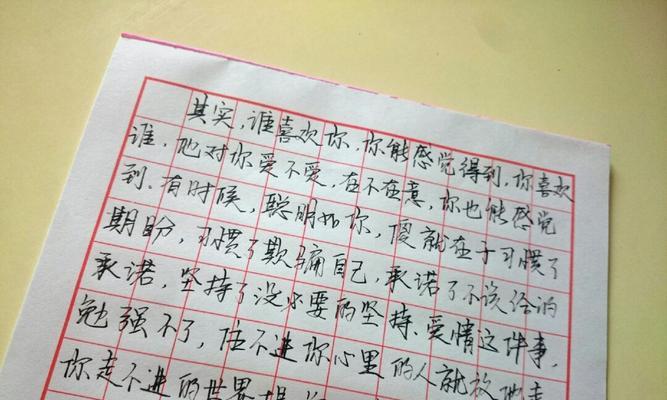 其实,谁喜欢你,你能感觉得到,你喜欢
谁,他对你爱不爱,在不在意,你也能感觉
到.有时候,聪明如你,傻就在于习惯了
期盼,习惯了欺骗自己,承诺了不该给的
承诺,坚持了没必要的坚持.爱情这件事,
勉强不了,住不进你心里的人就放他走
你走不进的世界